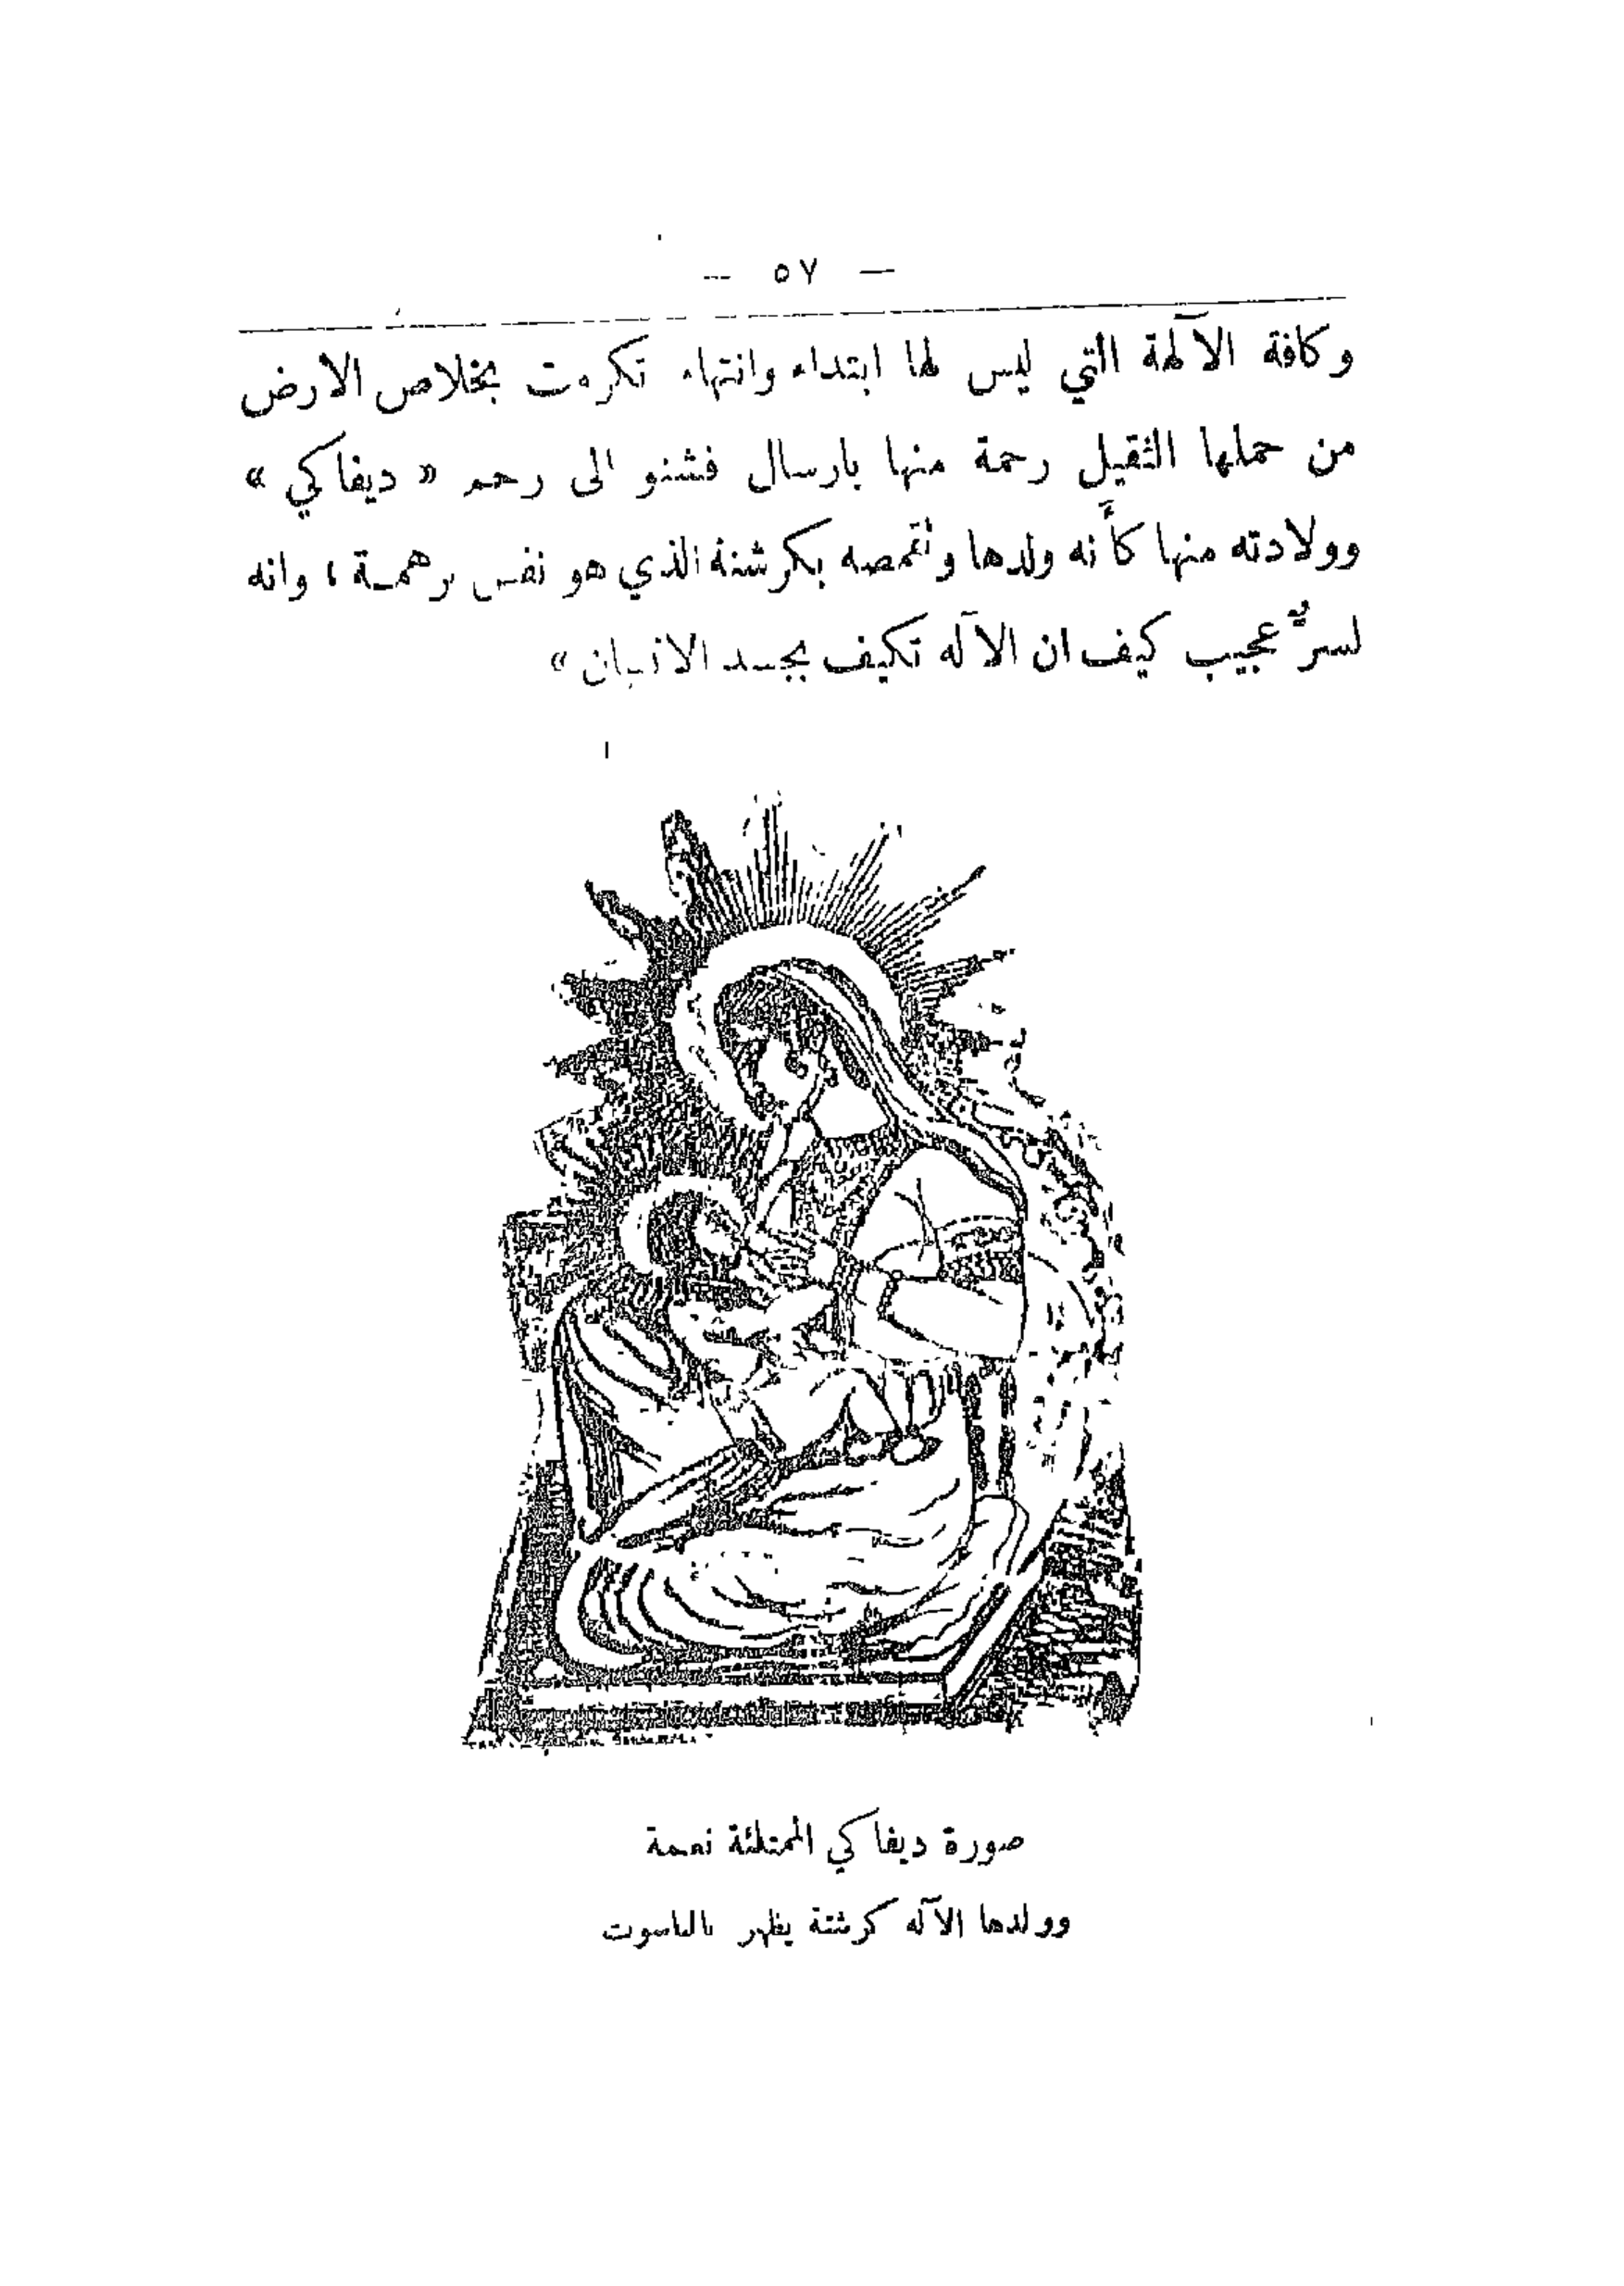 — ٥٧ —
وكافة الآلهة التي ليس لها ابتداء وانتهاء تكرمت بخلاص الارض
من حملها الثقيل رحمة منها بارسال فشنو الى رحم « ديفاكي »
وولادته منها كأنه ولدها وتقمصه بكرشنة الذي هو نفس برهمة ، وانه
لسرٌّ عجيب كيف ان الآله تكيف بجسد الانسان »
صورة ديفاكي الممتلئة نعمة
وولدها الآله كرشنة يظهر بالناسوت